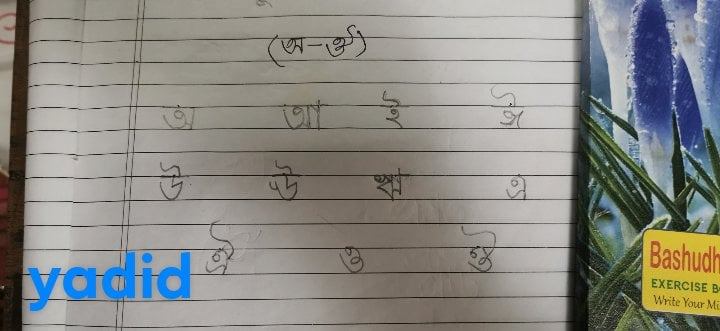 (অ-ঔ)
অ আ ই ঈ
উ ঊ ঋ এ
ঐ ও ঔ
yadid
Bashudh
EXERCISE B
Write Your Mi